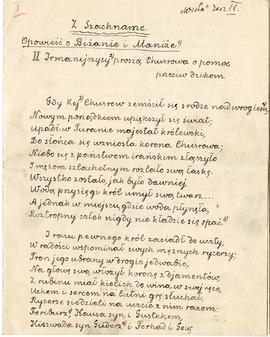 I
"Wisła" Zesz. IV.
Z Szachname.
Opowieść o Biżanie i Maniże¹)
II Irmanijczycy²) proszą Chusrowa o pomoc
przeciw dzikom.
Gdy Kej³) Chusrow zemścił się srodze nad wrogiem,
Nowym porządkiem upiększył się świat;
Upadł w Turanie majestat królewski,
Do słońca się wzniosła korona Chusrowa;
Niebo się z państwem irańskim złączyło
I mężom szlachetnym rozlało swą łaskę.
Wszystko zostało, jak było dawniej,
Wodą przysięgi król umył swą twarz...
A jednak w miejscu, gdzie woda płynęła,
Roztropny człek nigdy nie kładzie się spać.⁴)
I razu pewnego król zasiadł do uczty,
W radości wspominał swych mężnych rycerzy;
Tron jego ubrany w drogie jedwabie,
Na głowę swą włożył koronę z djamentów,
Z rubinu miał kielich do wina, w swej ręce,
Uchem i sercem na lutni gry słuchał;
Rycerze siedzieli na uczcie z nim razem:
Feriburz, Kausa syn i Gustehem
Hiszwada syn Guderz i Ferhad i Gew